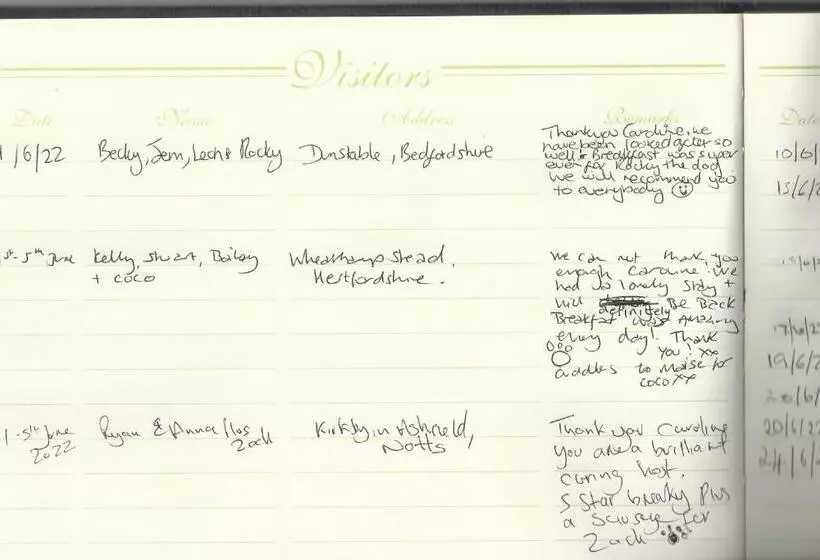 Visitors
Date Name Address Remarks Date
1/6/22 Becky, Jem, Leon & Rocky Dunstable, Bedfordshire
Thankyou Caroline, we
have been looked after so
well & Breakfast was super
even for Rocky the dog
we will recommend you
to everybody
1st - 5th June Kelly, Stuart, Bailey
+ coco
Wheathampstead,
Hertfordshire.
We can not thank you
enough Caroline. We
had a lovely stay +
will definitely Be Back
Breakfast was Amazing
every day! Thank
You! xx
cuddles to Maise for
coco xx
1 - 5th June
2022
Ryan & Anna
Zack
Kirkby in Ashfield,
Notts
Thank you Caroline
you are a brilliant
caring host.
5 Star breaky Plus
a sausage for
Zack
10/6/
15/6/2
17/6/2
19/6/2
20/6/22
24/6/2